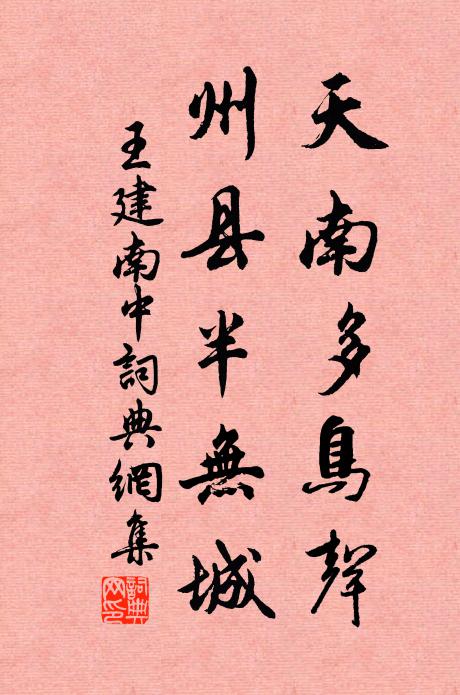 天南多鳥聲
州县半無城
王建南中詞典網集
詞典網印